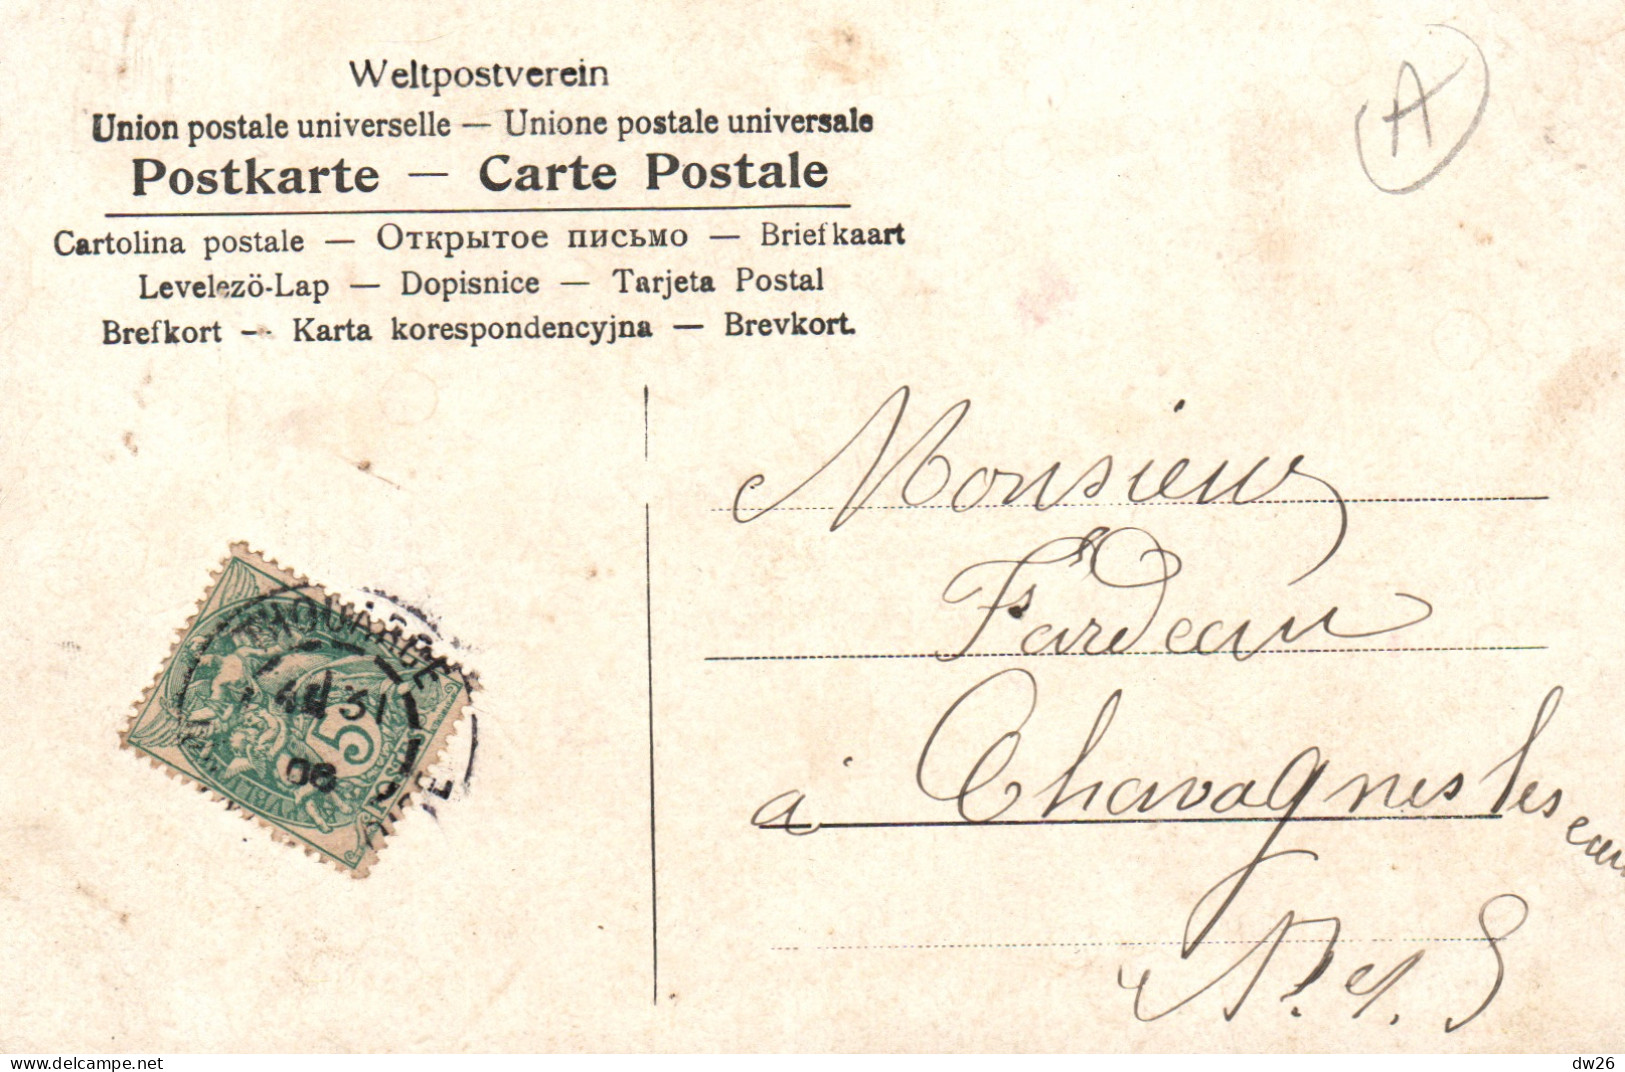 Weltpostverein
Union postale universelle — Unione postale universale
Postkarte — Carte Postale
Cartolina postale — Открытое письмо — Briefkaart
Levelezö-Lap — Dopisnice — Tarjeta Postal
Brefkort — Karta korespondencyjna — Brevkort.
A
Monsieur
Fardeau
à Chavagnes les eaux
THOUARCE
31
06
5
delcampe.net
dw26